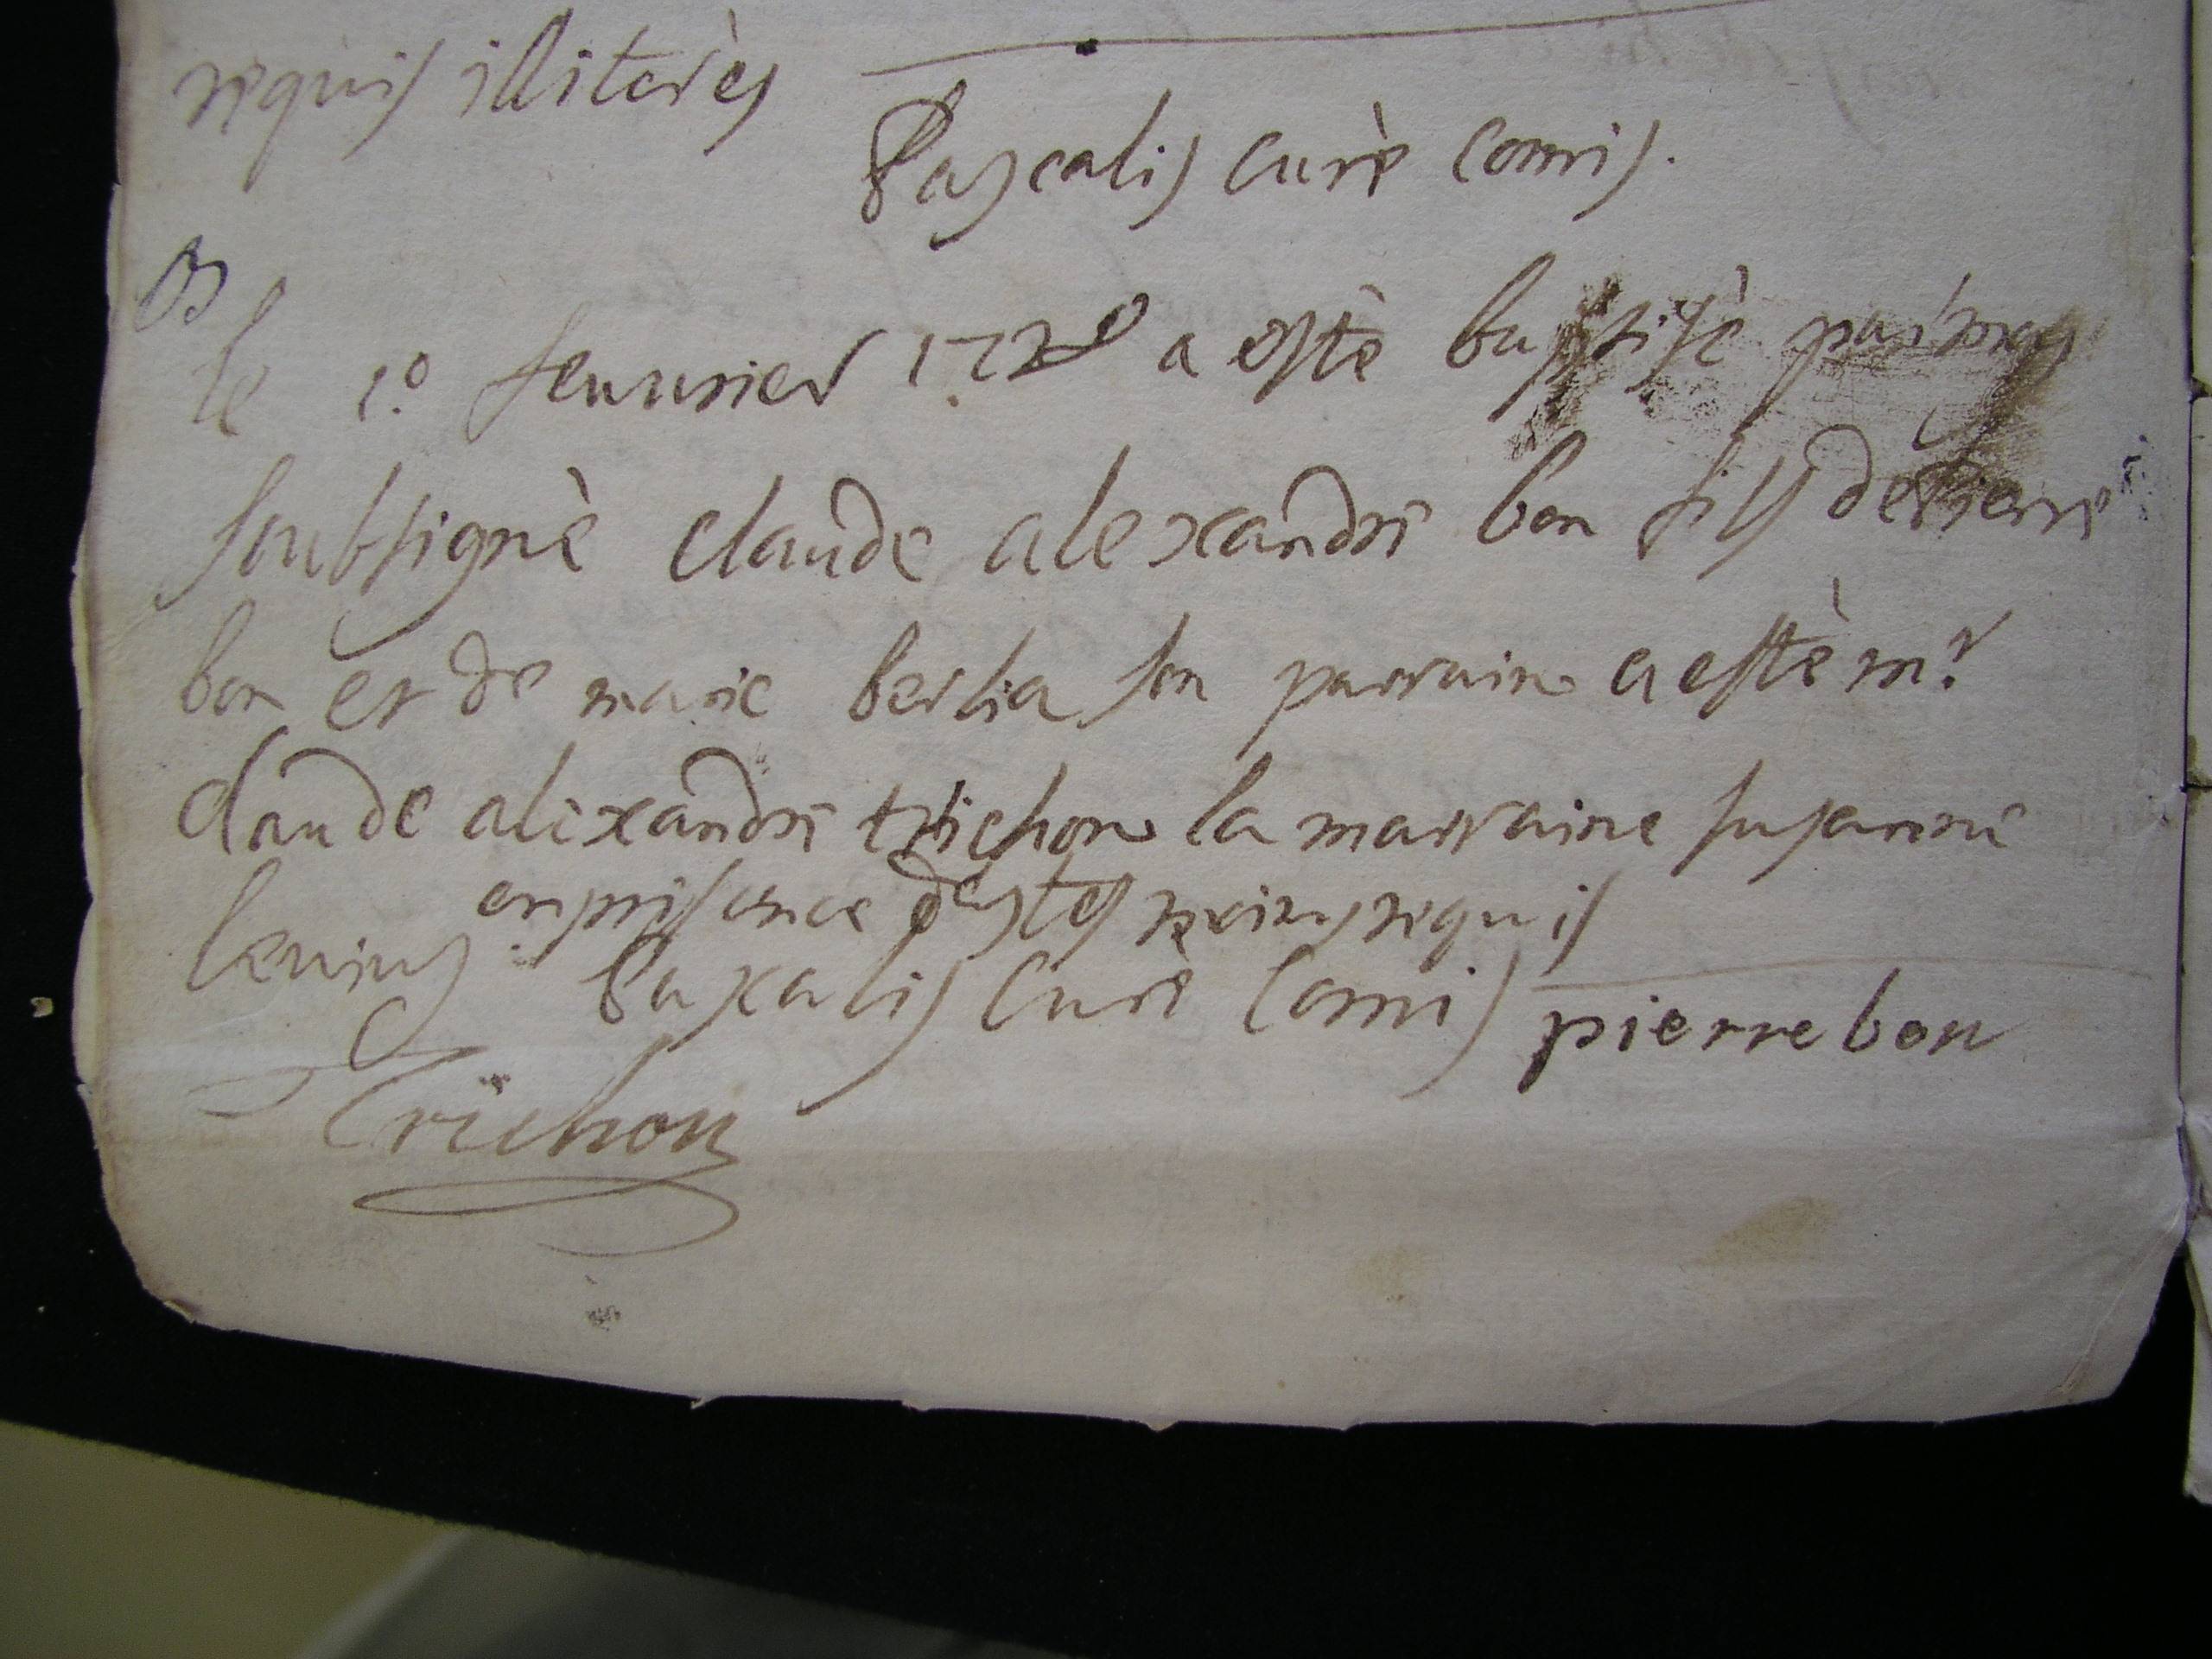 requis illiterès
Pascalis curè comis.
B
le 1.º feuurier 1728 a estè baptisè par moy
soubsignè claude alexandre bon fils de pierre
bon et de marie berlia son parrain a estè mr
claude alexandre trichon la marraine susanne
en presence des tesmoins requis
Pascalis Curè Comis pierre bon
Trichon